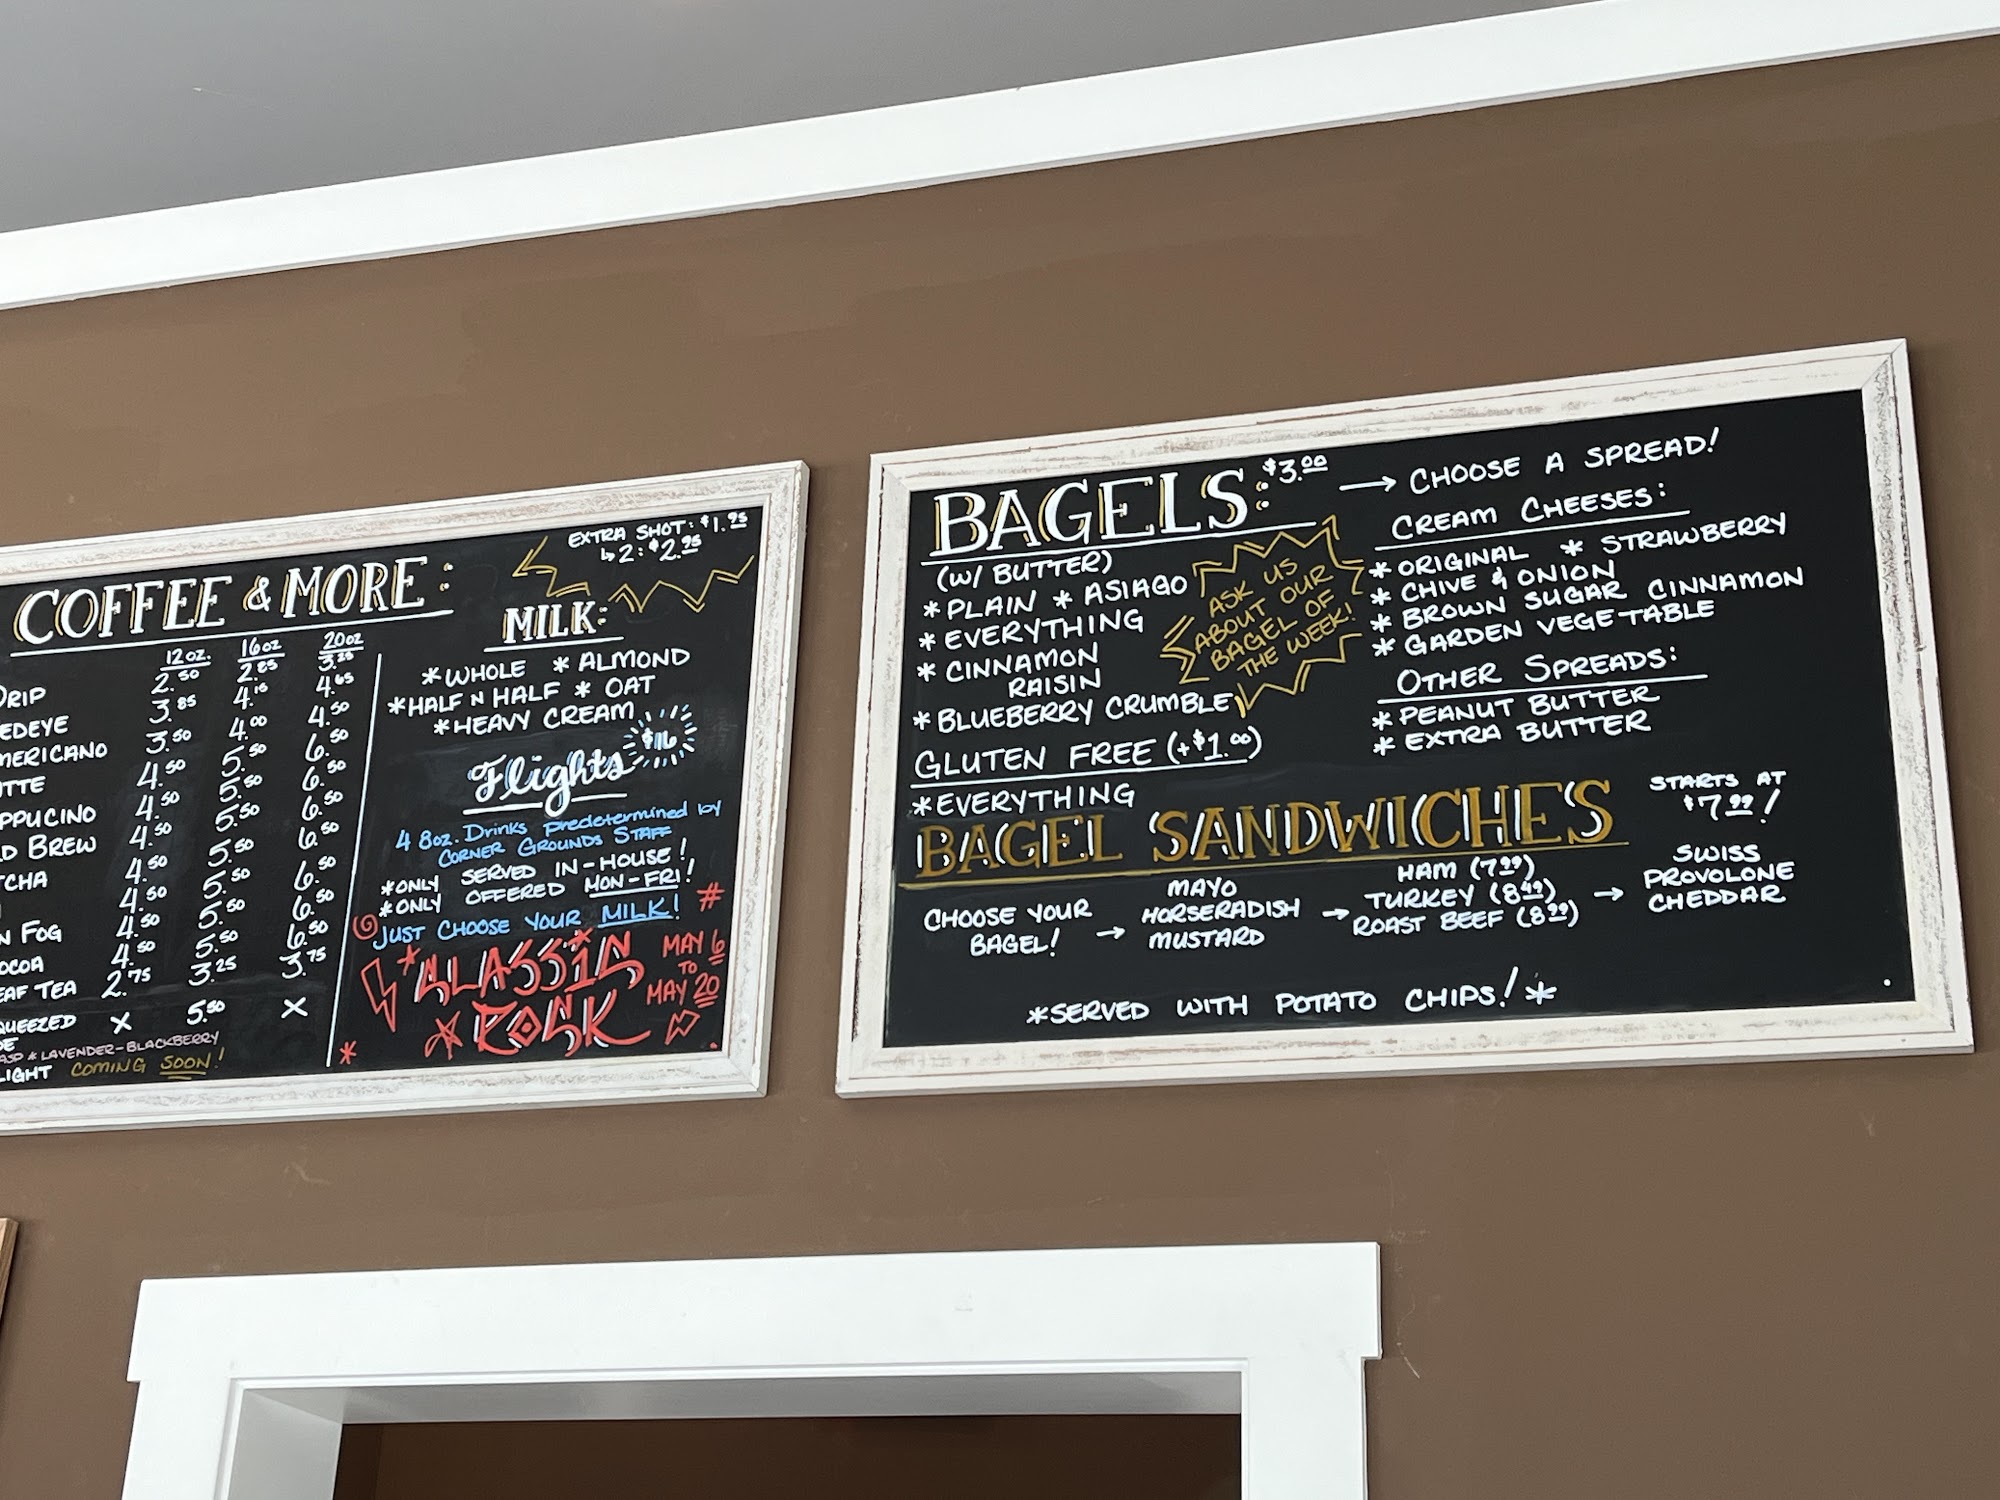 COFFEE & MORE:
12oz. 16oz 20oz
DRIP 2.50 2.85 3.25
EDEYE 3.85 4.15 4.65
MERICANO 3.50 4.00 4.50
TTE 4.50 5.50 6.50
PPUCINO 4.50 5.50 6.50
D BREW 4.50 5.50 6.50
TCHA 4.50 5.50 6.50
4.50 5.50 6.50
N FOG 4.50 5.50 6.50
OCOA 4.50 5.50 6.50
EAF TEA 2.75 3.25 3.75
QUEEZED X 5.50 X
DE
ASP * LAVENDER-BLACKBERRY
LIGHT COMING SOON!
EXTRA SHOT: $1.95
↳ 2: $2.95
MILK:
*WHOLE *ALMOND
*HALF N HALF * OAT
*HEAVY CREAM
Flights $16
4 8oz. Drinks predetermined by
CORNER GROUNDS STAFF
*ONLY SERVED IN-HOUSE!
*ONLY OFFERED MON-FRI!
JUST CHOOSE YOUR MILK!
CLASSIC
ROCK
MAY 6
TO
MAY 20
BAGELS: $3.00
(W/ BUTTER)
*PLAIN * ASIAGO
*EVERYTHING
*CINNAMON
RAISIN
*BLUEBERRY CRUMBLE
GLUTEN FREE (+$1.00)
*EVERYTHING
ASK US
ABOUT OUR
BAGEL OF
THE WEEK!
→ CHOOSE A SPREAD!
CREAM CHEESES:
*ORIGINAL * STRAWBERRY
*CHIVE & ONION
*BROWN SUGAR CINNAMON
*GARDEN VEGETABLE
OTHER SPREADS:
*PEANUT BUTTER
*EXTRA BUTTER
BAGEL SANDWICHES
STARTS AT
$7.99!
CHOOSE YOUR
BAGEL!
→ MAYO
HORSERADISH
MUSTARD
→ HAM (7.99)
TURKEY (8.49)
ROAST BEEF (8.99)
→ SWISS
PROVOLONE
CHEDDAR
*SERVED WITH POTATO CHIPS!*